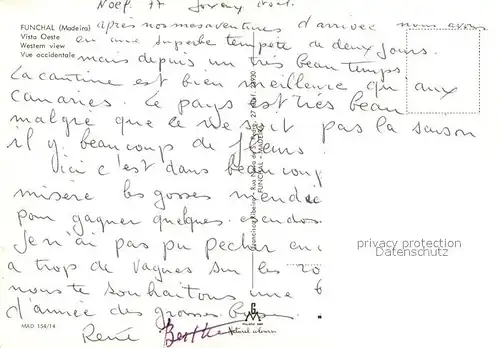 Noël 77 Joyeux Noël.
FUNCHAL (Madeira)
Vista Oeste
Western view
Vue occidentale
après nos mesaventures d'arrivée nous avons
eu une superbe tempete de deux jours.
mais depuis un très beau temps.
La cantine est bien meilleure qu'aux
canaries. Le pays est très beau
malgre que ce ne soit pas la saison
il y beaucoup de fleurs.
ici c'est dans beaucoup
misère les gosses
pour gagner quelques
Je n'ai pas pu pecher
a trop de vagues sur les
nous te souhaitons une
d'année des grosses bises
René Berthe
MAD 154/14
FUNCHAL - MADEIRA
Natural colours
privacy protection
Datenschutz